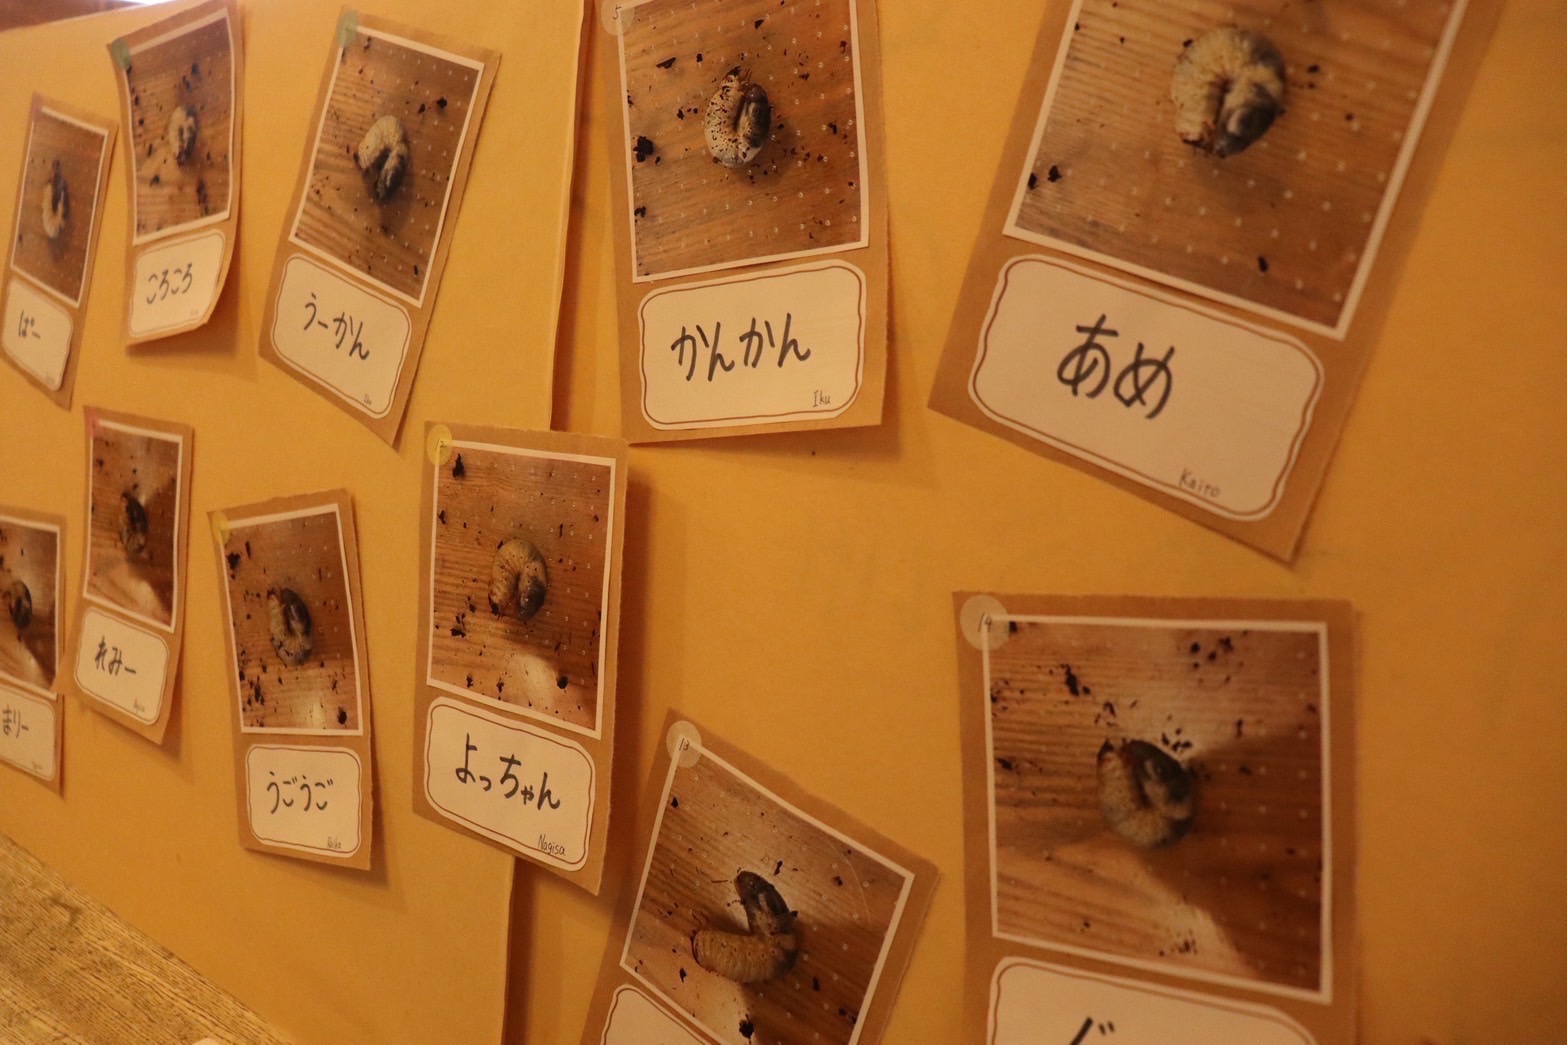 ばー
ころころ
うーかん
5
かんかん
Iku
あめ
Kaito
まりー
れみー
うごうご
よっちゃん
Nagisa
13
14
ぐ